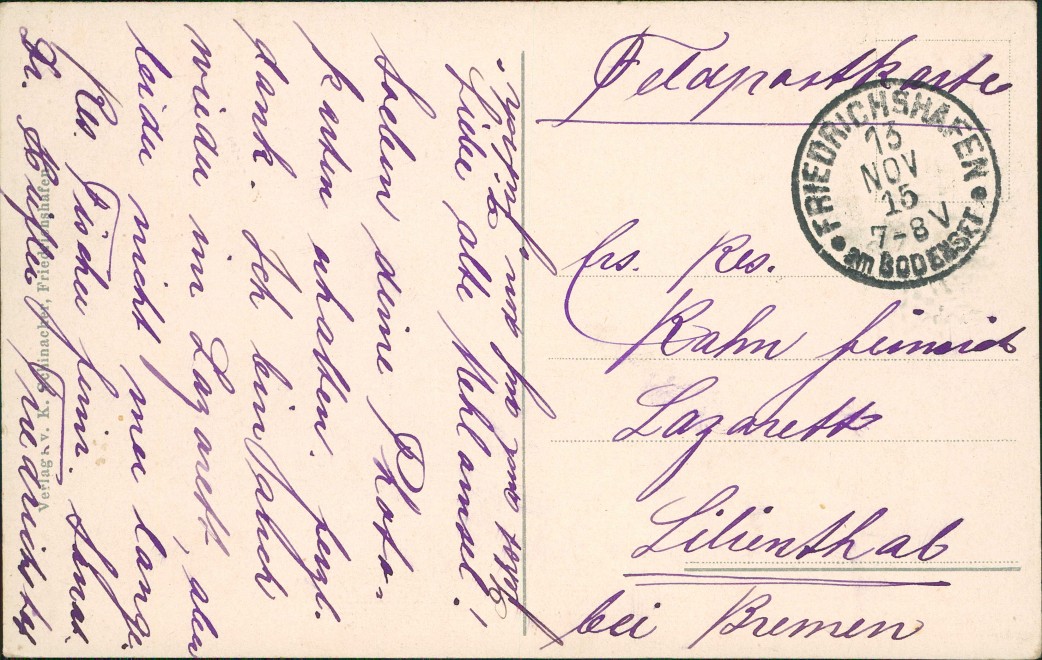 Feldpostkarte
FRIEDRICHSHAFEN
13
NOV
15
7-8 V
am BODENSEE
Ers. Res.
Kahn Heinrich
Lazarett
Lilienthal
bei Bremen
Liebe alte Mehlamsel!
Soeben deine Photo-
karten erhalten. Herzl.
dank. Ich bin
wieder im Lazarett, aber
leider nicht mer lange.
Res. Fischer Heinr.
Friedrichshf
Verlag v. K. Schinacher, Friedrichshafen